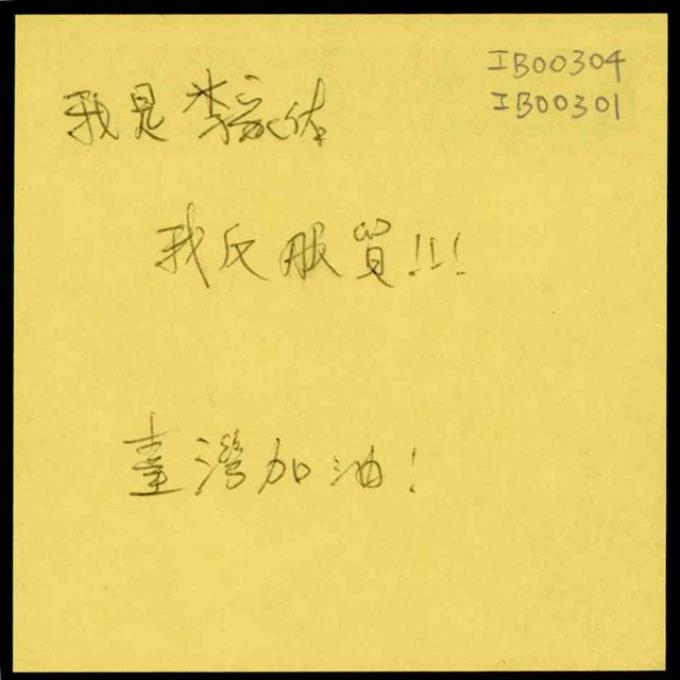 IB00304
IB00301
我是李
我反服貿!!!
臺灣加油!